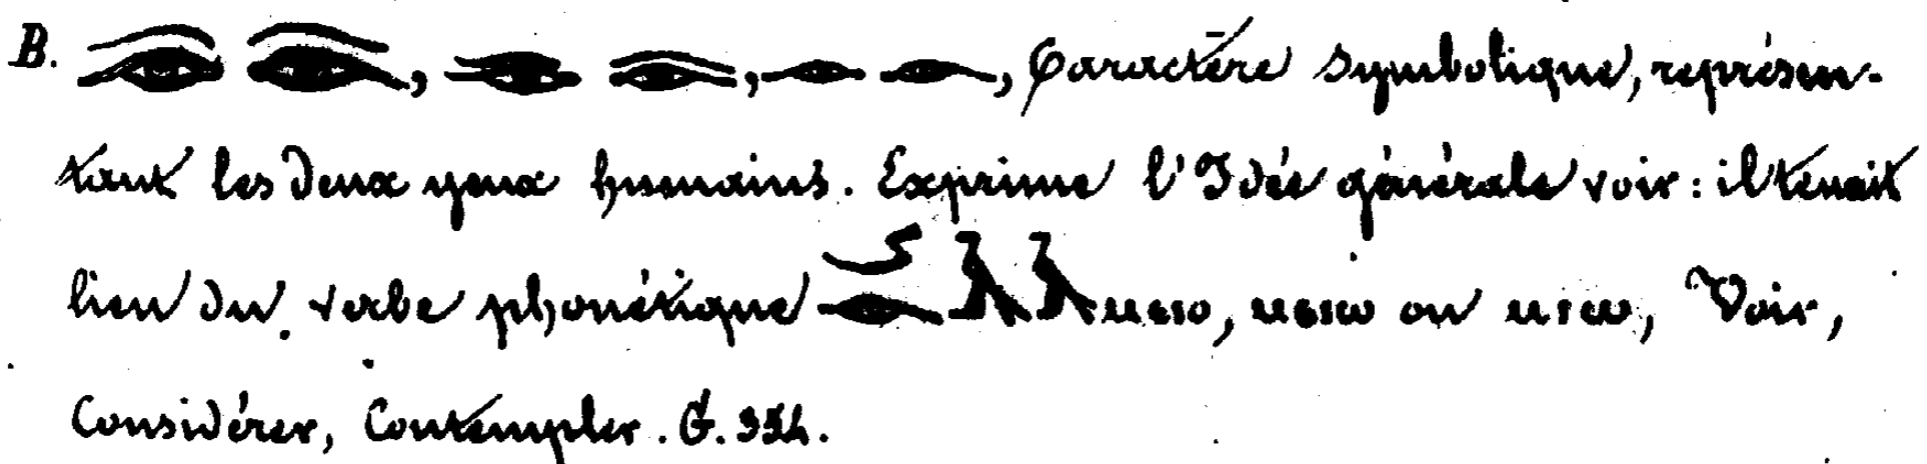 B. , , , Caractère symbolique, représen-
tant les deux yeux humains. Exprime l'Idée générale voir : il tenait
lieu du verbe phonétique , ou , Voir,
Considérer, Contempler. G.